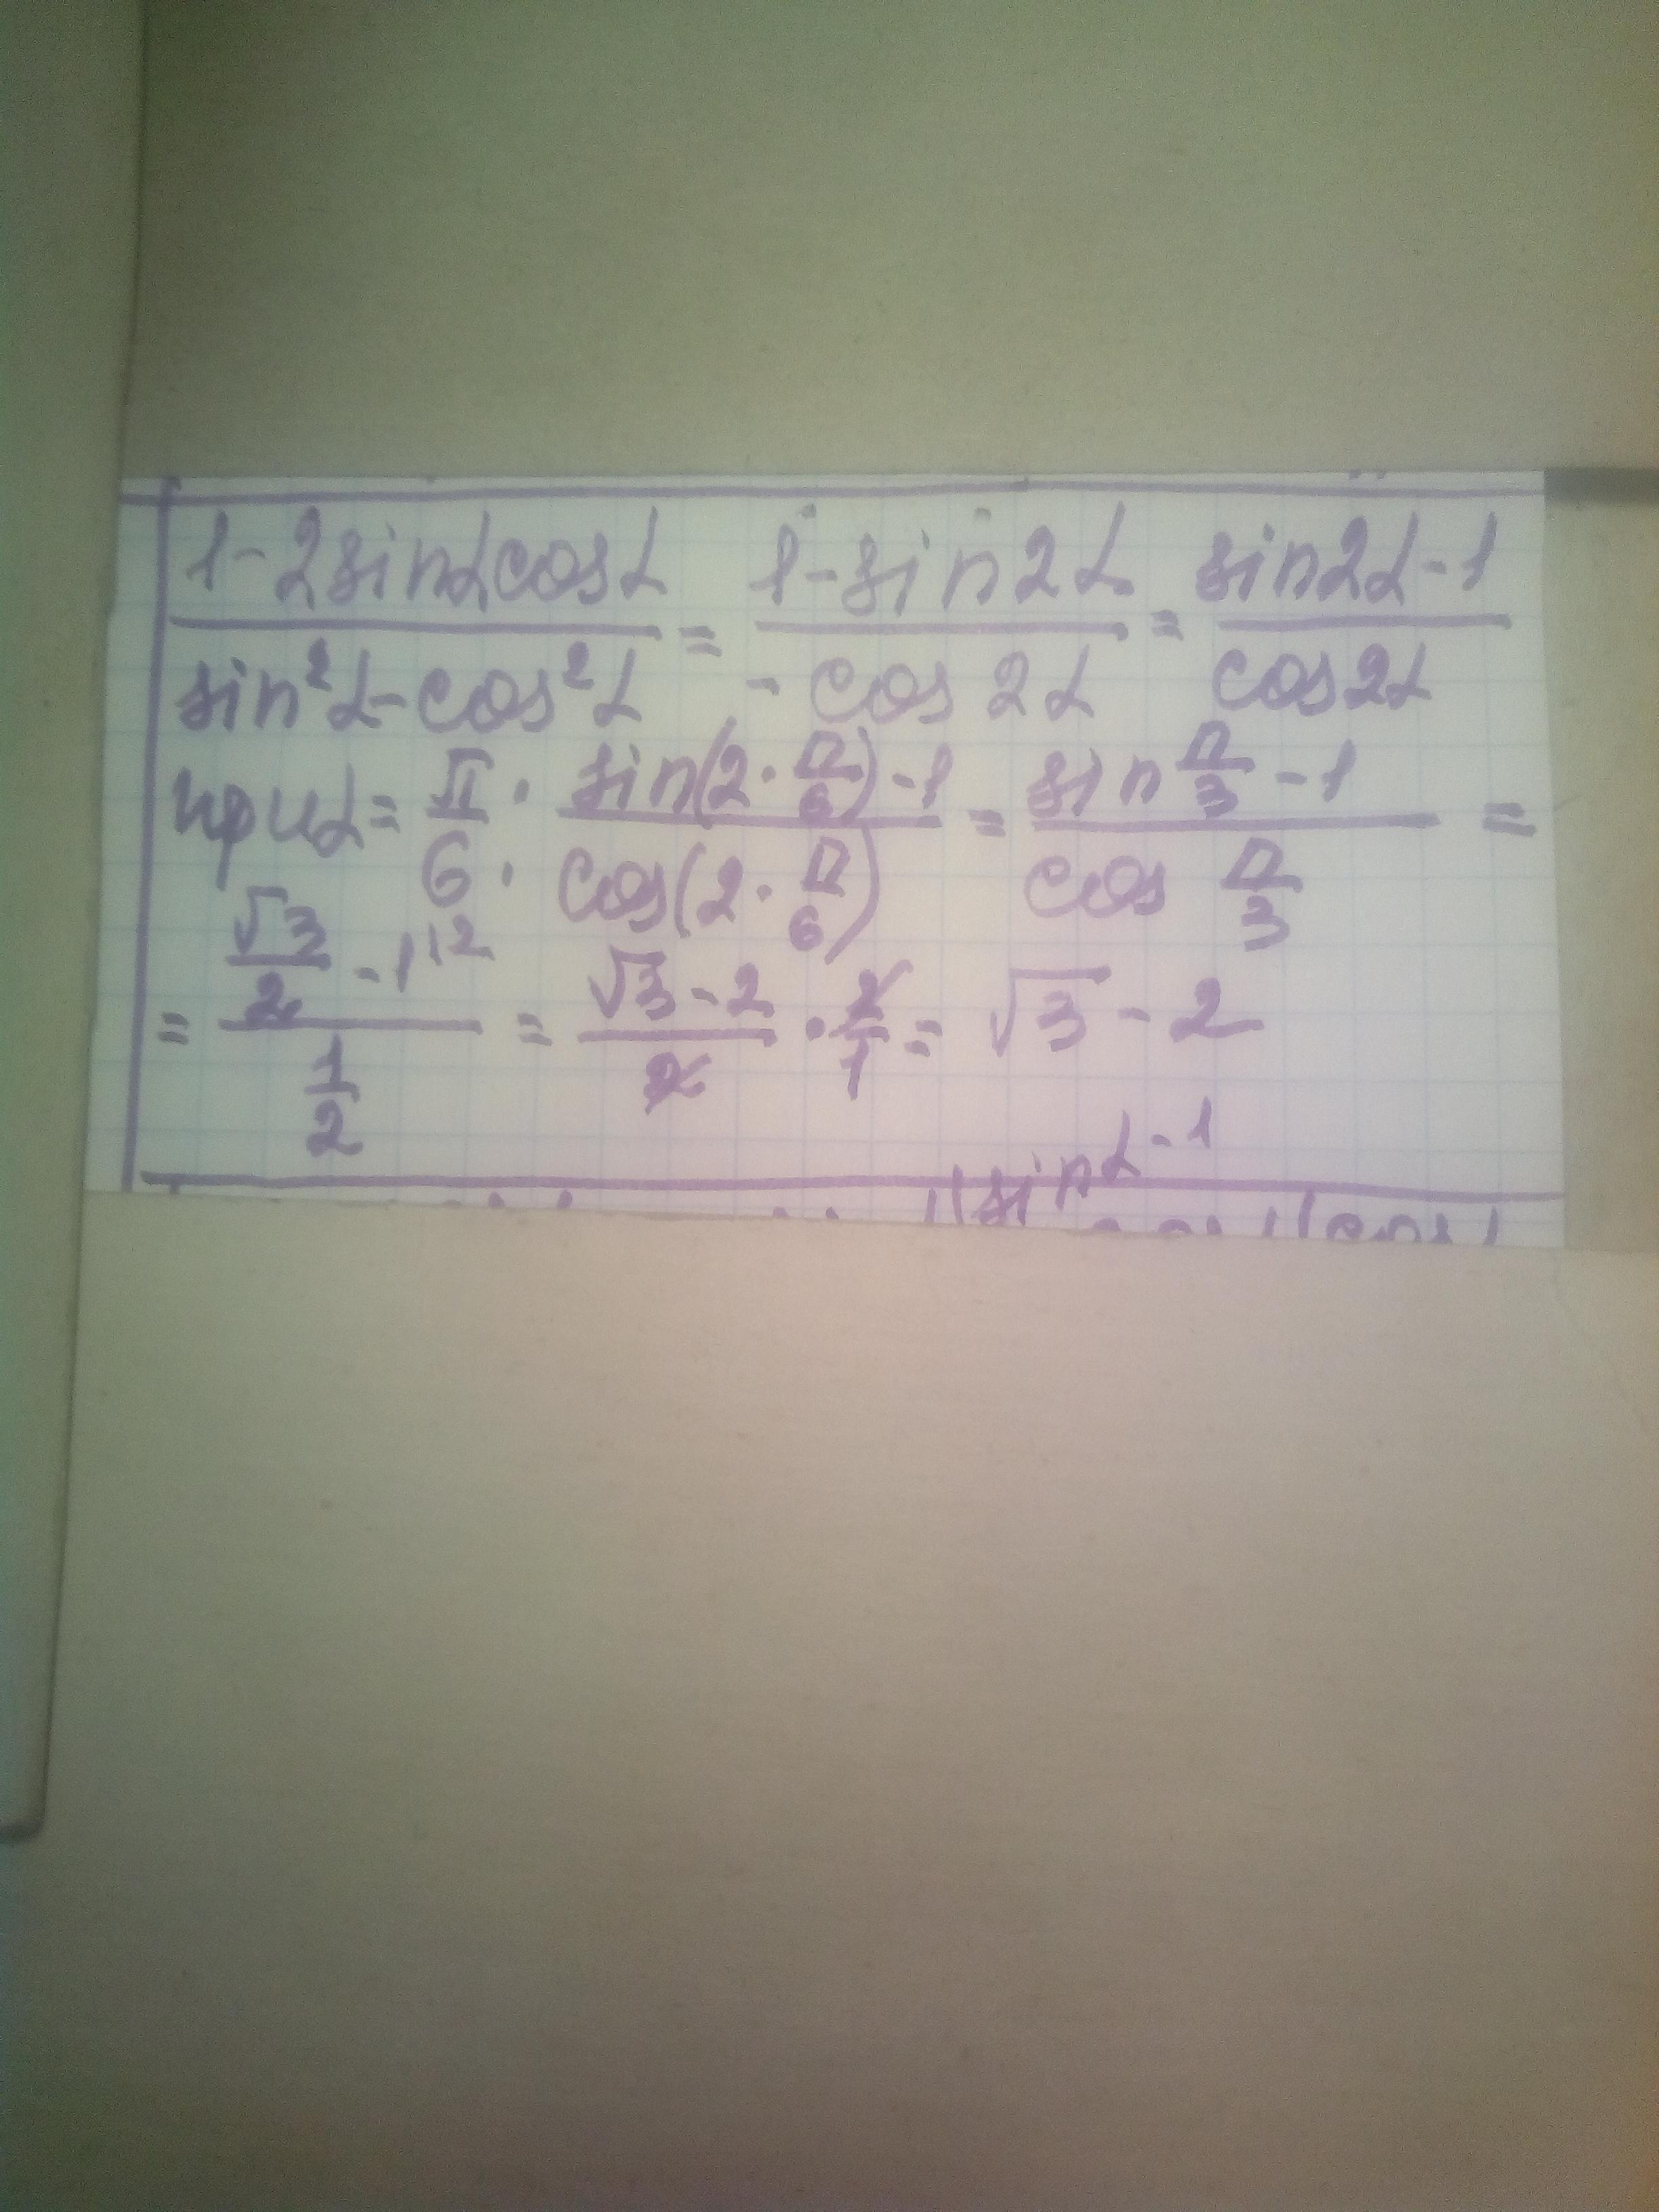 (1-2sinαcosα)/(sin²α-cos²α) = (1-sin2α)/(-cos2α) = (sin2α-1)/(cos2α)
при α = π/6 : (sin(2·π/6)-1)/(cos(2·π/6)) = (sin π/3 -1)/(cos π/3) =
= (√3/2 - 1^{\2})/(1/2) = (√3-2)/2 · 2/1 = √3 - 2
sinα-1